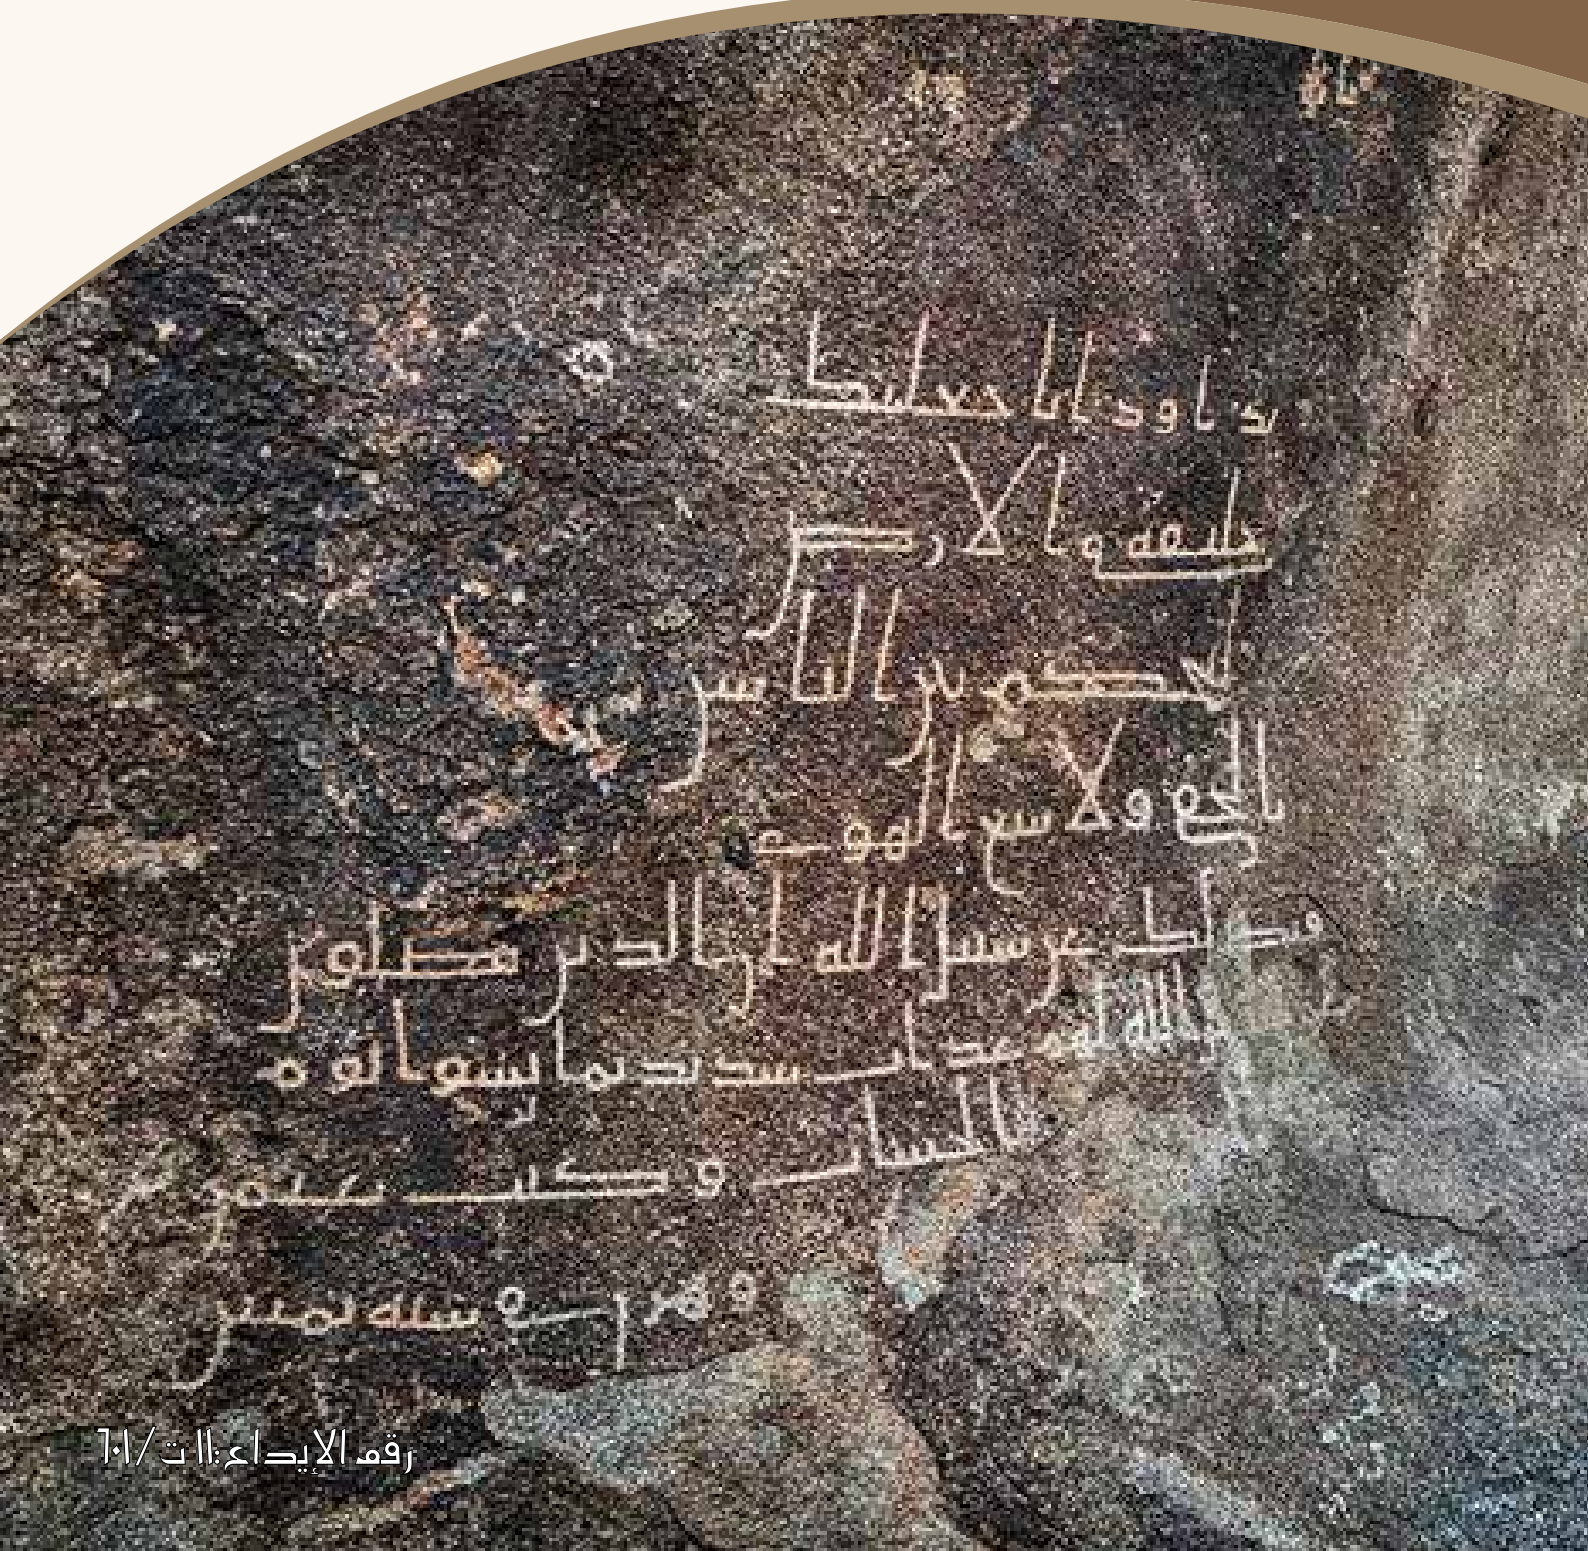 يداود انا جعلنك
خليفه في الارض
لتحكم بين الناس
بالحق ولا تتبع الهوى
فيضلك عن سبيل الله ان الذين يضلون
الله لهم عذاب شديد بما نسوا يوم
الحساب وكتب عثمن
سنه ثمنين
رقم الإيداع:١١ت/٦٠١